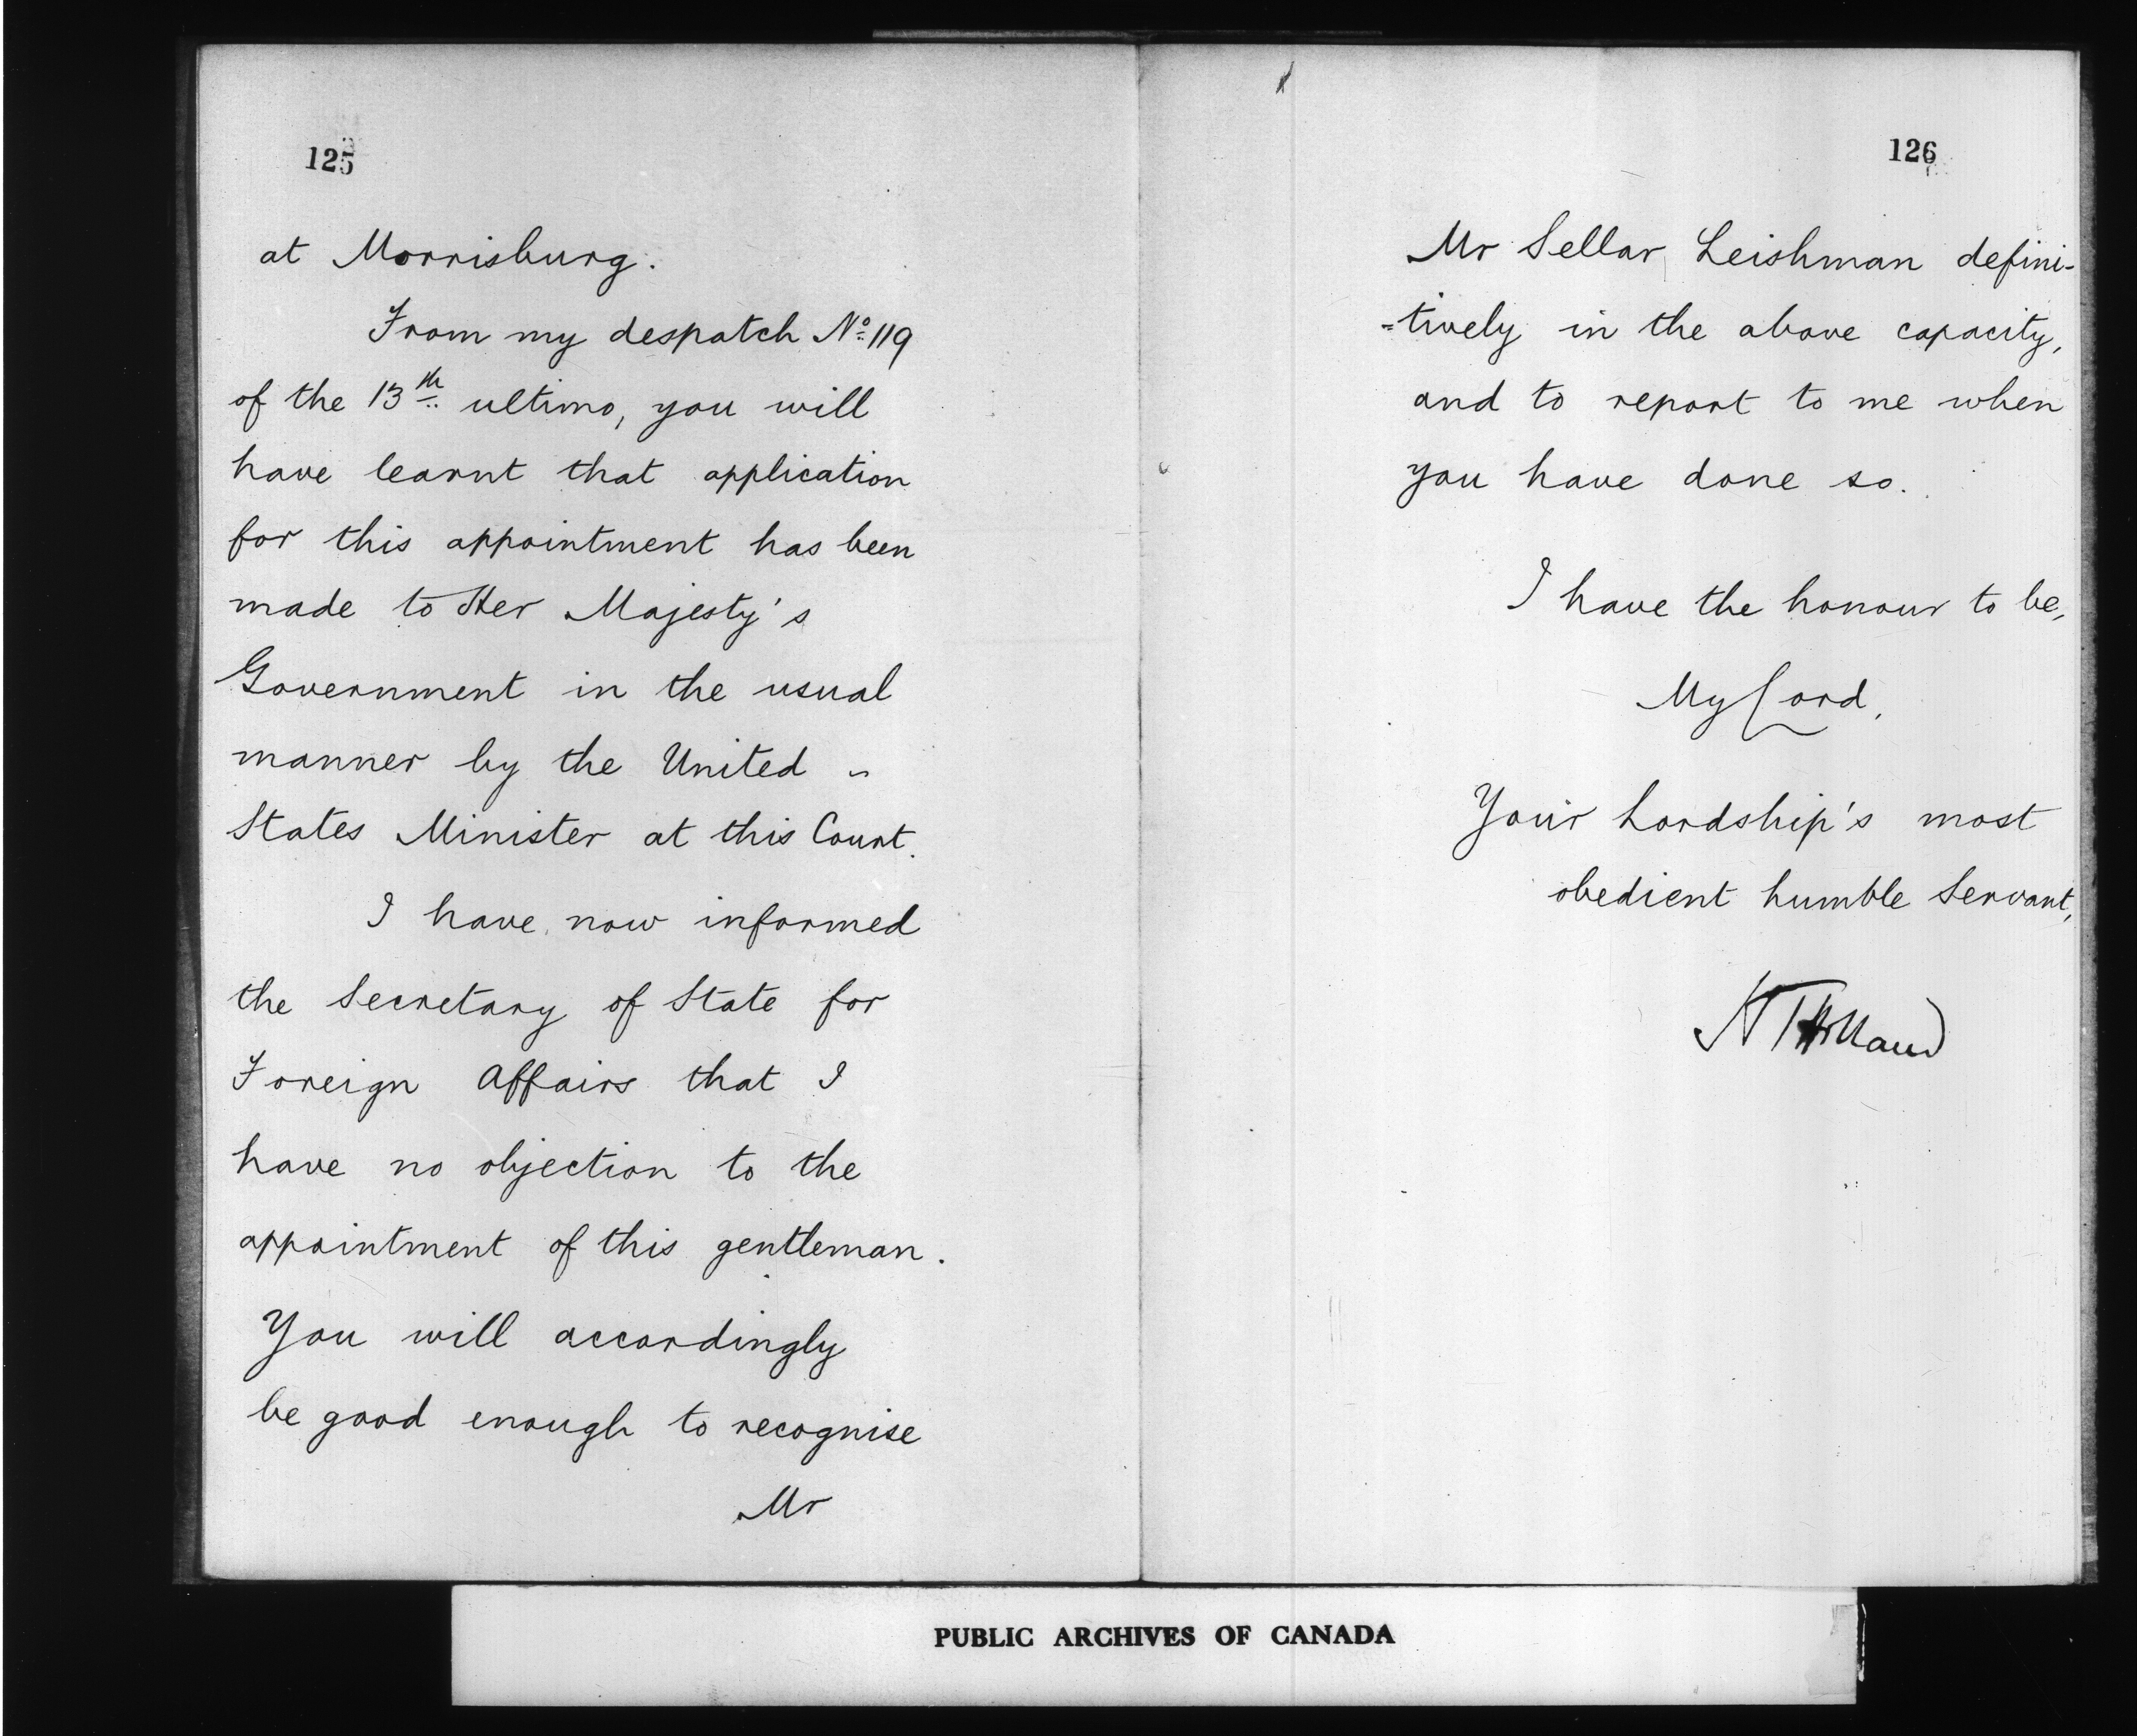 125
at Morrisburg.
From my despatch No. 119
of the 13th ultimo, you will
have learnt that application
for this appointment has been
made to Her Majesty's
Government in the usual
manner by the United -
States Minister at this Court.
I have now informed
the Secretary of State for
Foreign Affairs that I
have no objection to the
appointment of this gentleman.
You will accordingly
be good enough to recognise
Mr
126
Mr Sellar Leishman defini-
=tively in the above capacity,
and to report to me when
you have done so.
I have the honour to be,
My Lord,
Your Lordship's most
obedient humble Servant,
H T Holland
PUBLIC ARCHIVES OF CANADA